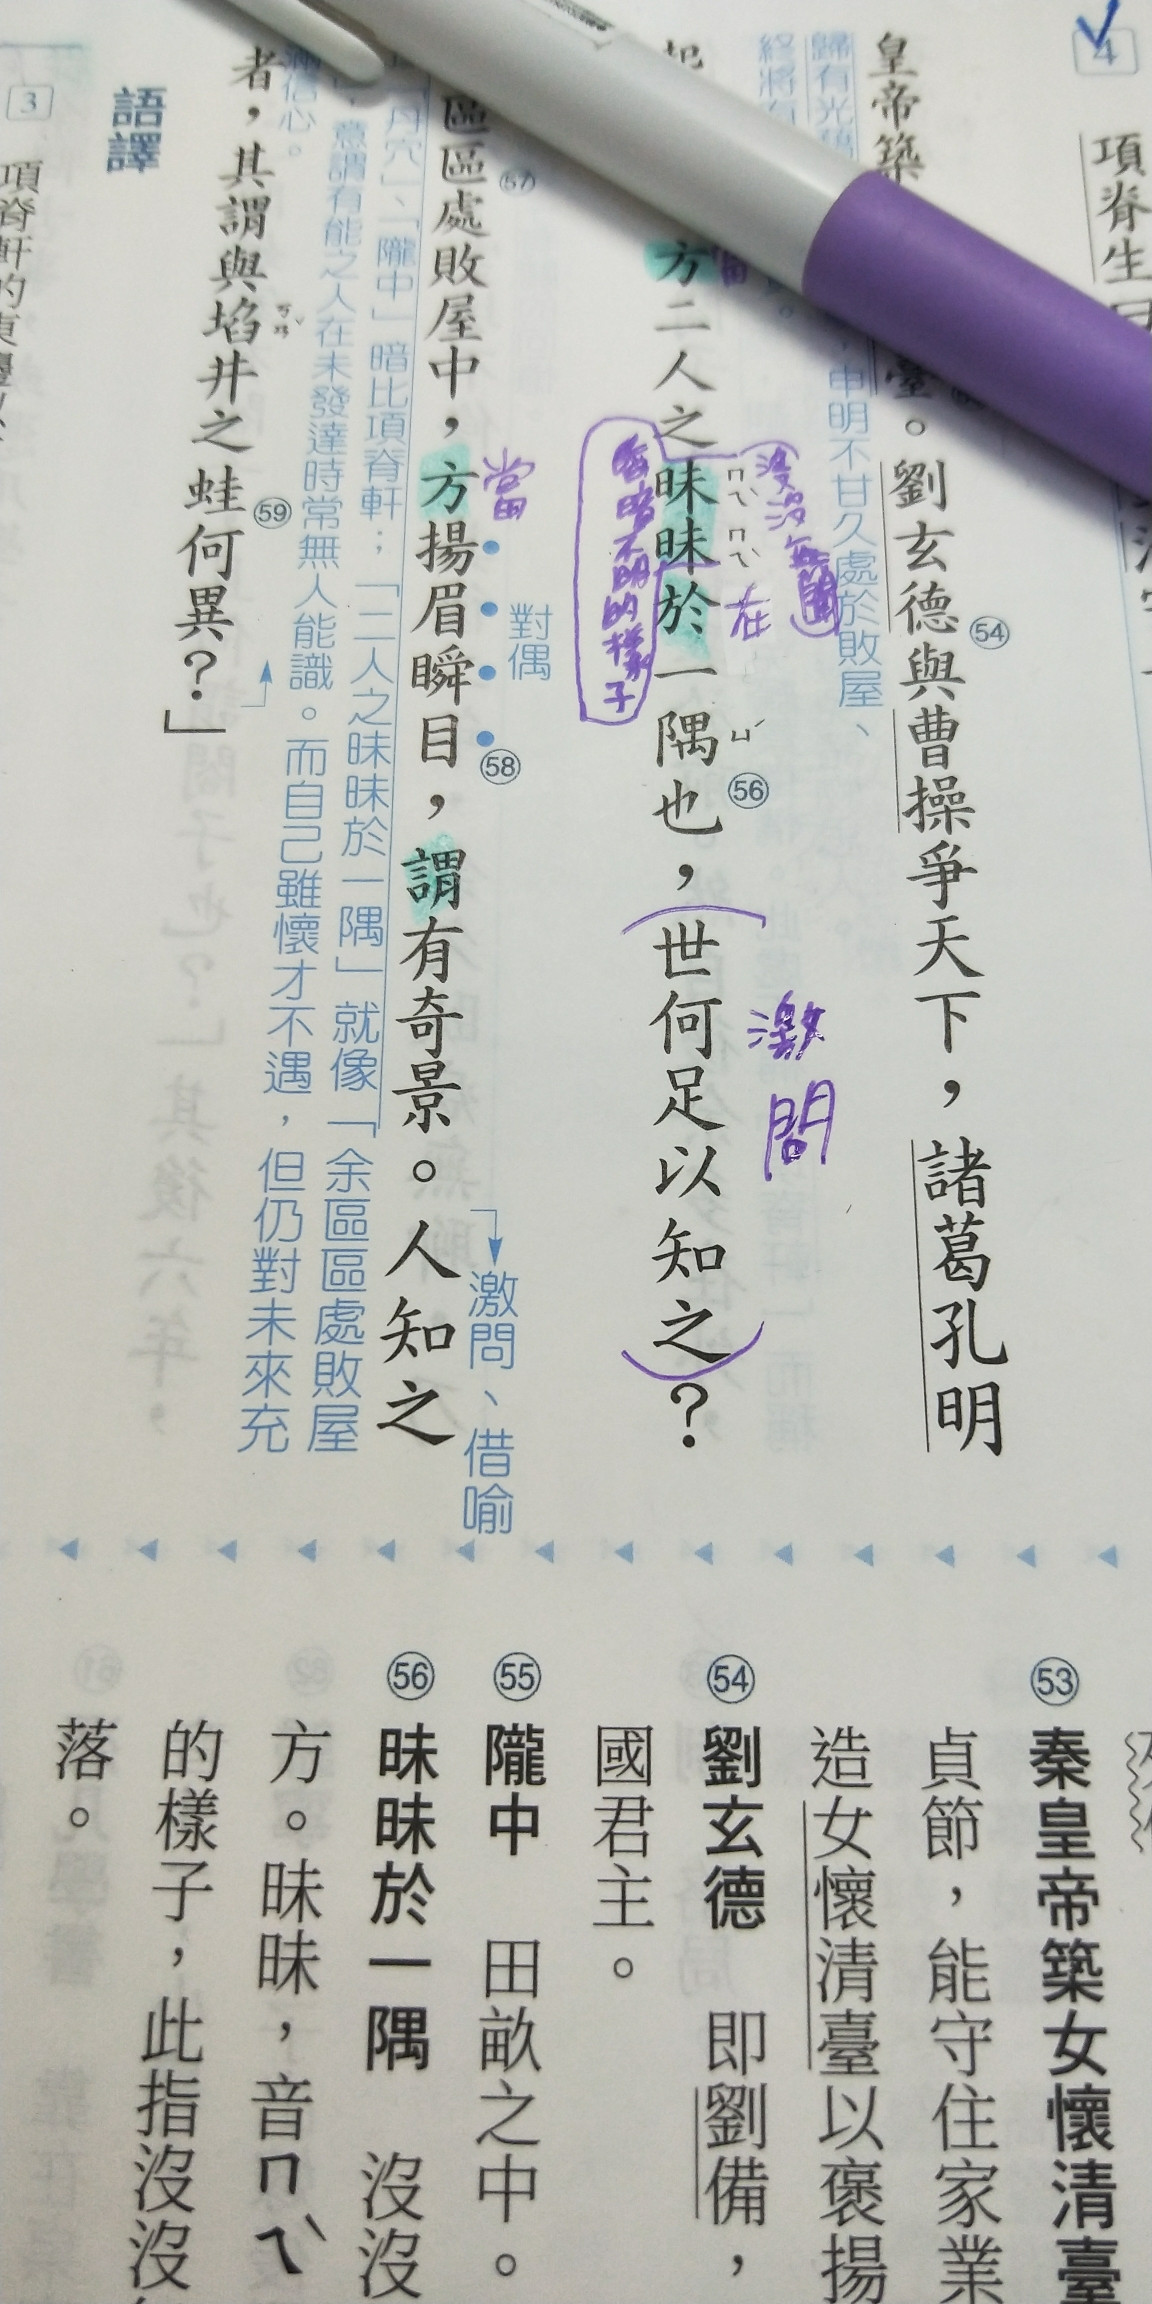 4
項脊生
皇帝築
臺。劉玄德與曹操爭天下,諸葛孔明
54
歸有光
終將有
申明不甘久處於敗屋、
方二人之昧昧於一隅也,世何足以知之?
ㄇㄟˋ ㄇㄟˋ
ㄩˊ
56
沒沒無聞
在
昏暗不明的樣子
激問
區區處敗屋中,方揚眉瞬目,謂有奇景。人知之
57
當
對偶
58
激問、借喻
「丹穴」、「隴中」暗比項脊軒;「二人之昧昧於一隅」就像「余區區處敗屋
,意謂有能之人在未發達時常無人能識。而自己雖懷才不遇,但仍對未來充
滿信心。
者,其謂與埳井之蛙何異?」
ㄎㄢˇ
59
語譯
3
項脊軒的
53 秦皇帝築女懷清臺
貞節,能守住家業
造女懷清臺以褒揚
54 劉玄德 即劉備,
國君主。
55 隴中 田畝之中。
56 昧昧於一隅 沒沒
方。昧昧,音ㄇㄟˋ
的樣子,此指沒沒
落。